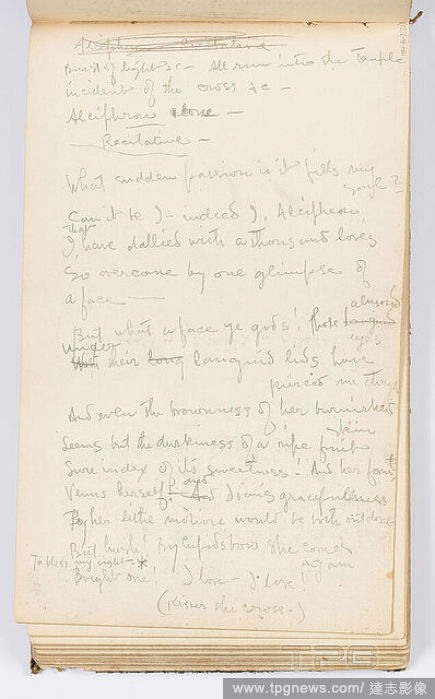 Alciphron Recitative
Burst of light &c – All run into the Temple
incident of the cross &c –
Alciphron alone –
Recitative –
What sudden passion is it fills my
soul?
Can it be I – indeed I, Alciphron,
that
I, have dallied with a thousand loves
So overcome by one glimpse of
a face —
But what a face ye gods! those
almond
eyes
under
their long languid lids have
pierced me through
And even the brownness of her burnished
skin
Seems but the duskiness of a ripe fruit
Sure index of its sweetness! And her form
Venus herself &
gracefulness
By her little motions would be both outdone
But hush! By Cupids bow she comes
again
To bless my sight *
Bright one! I love – I love!
(Kisses the cross.)
TPG
www.tpgnews.com / 達志影像